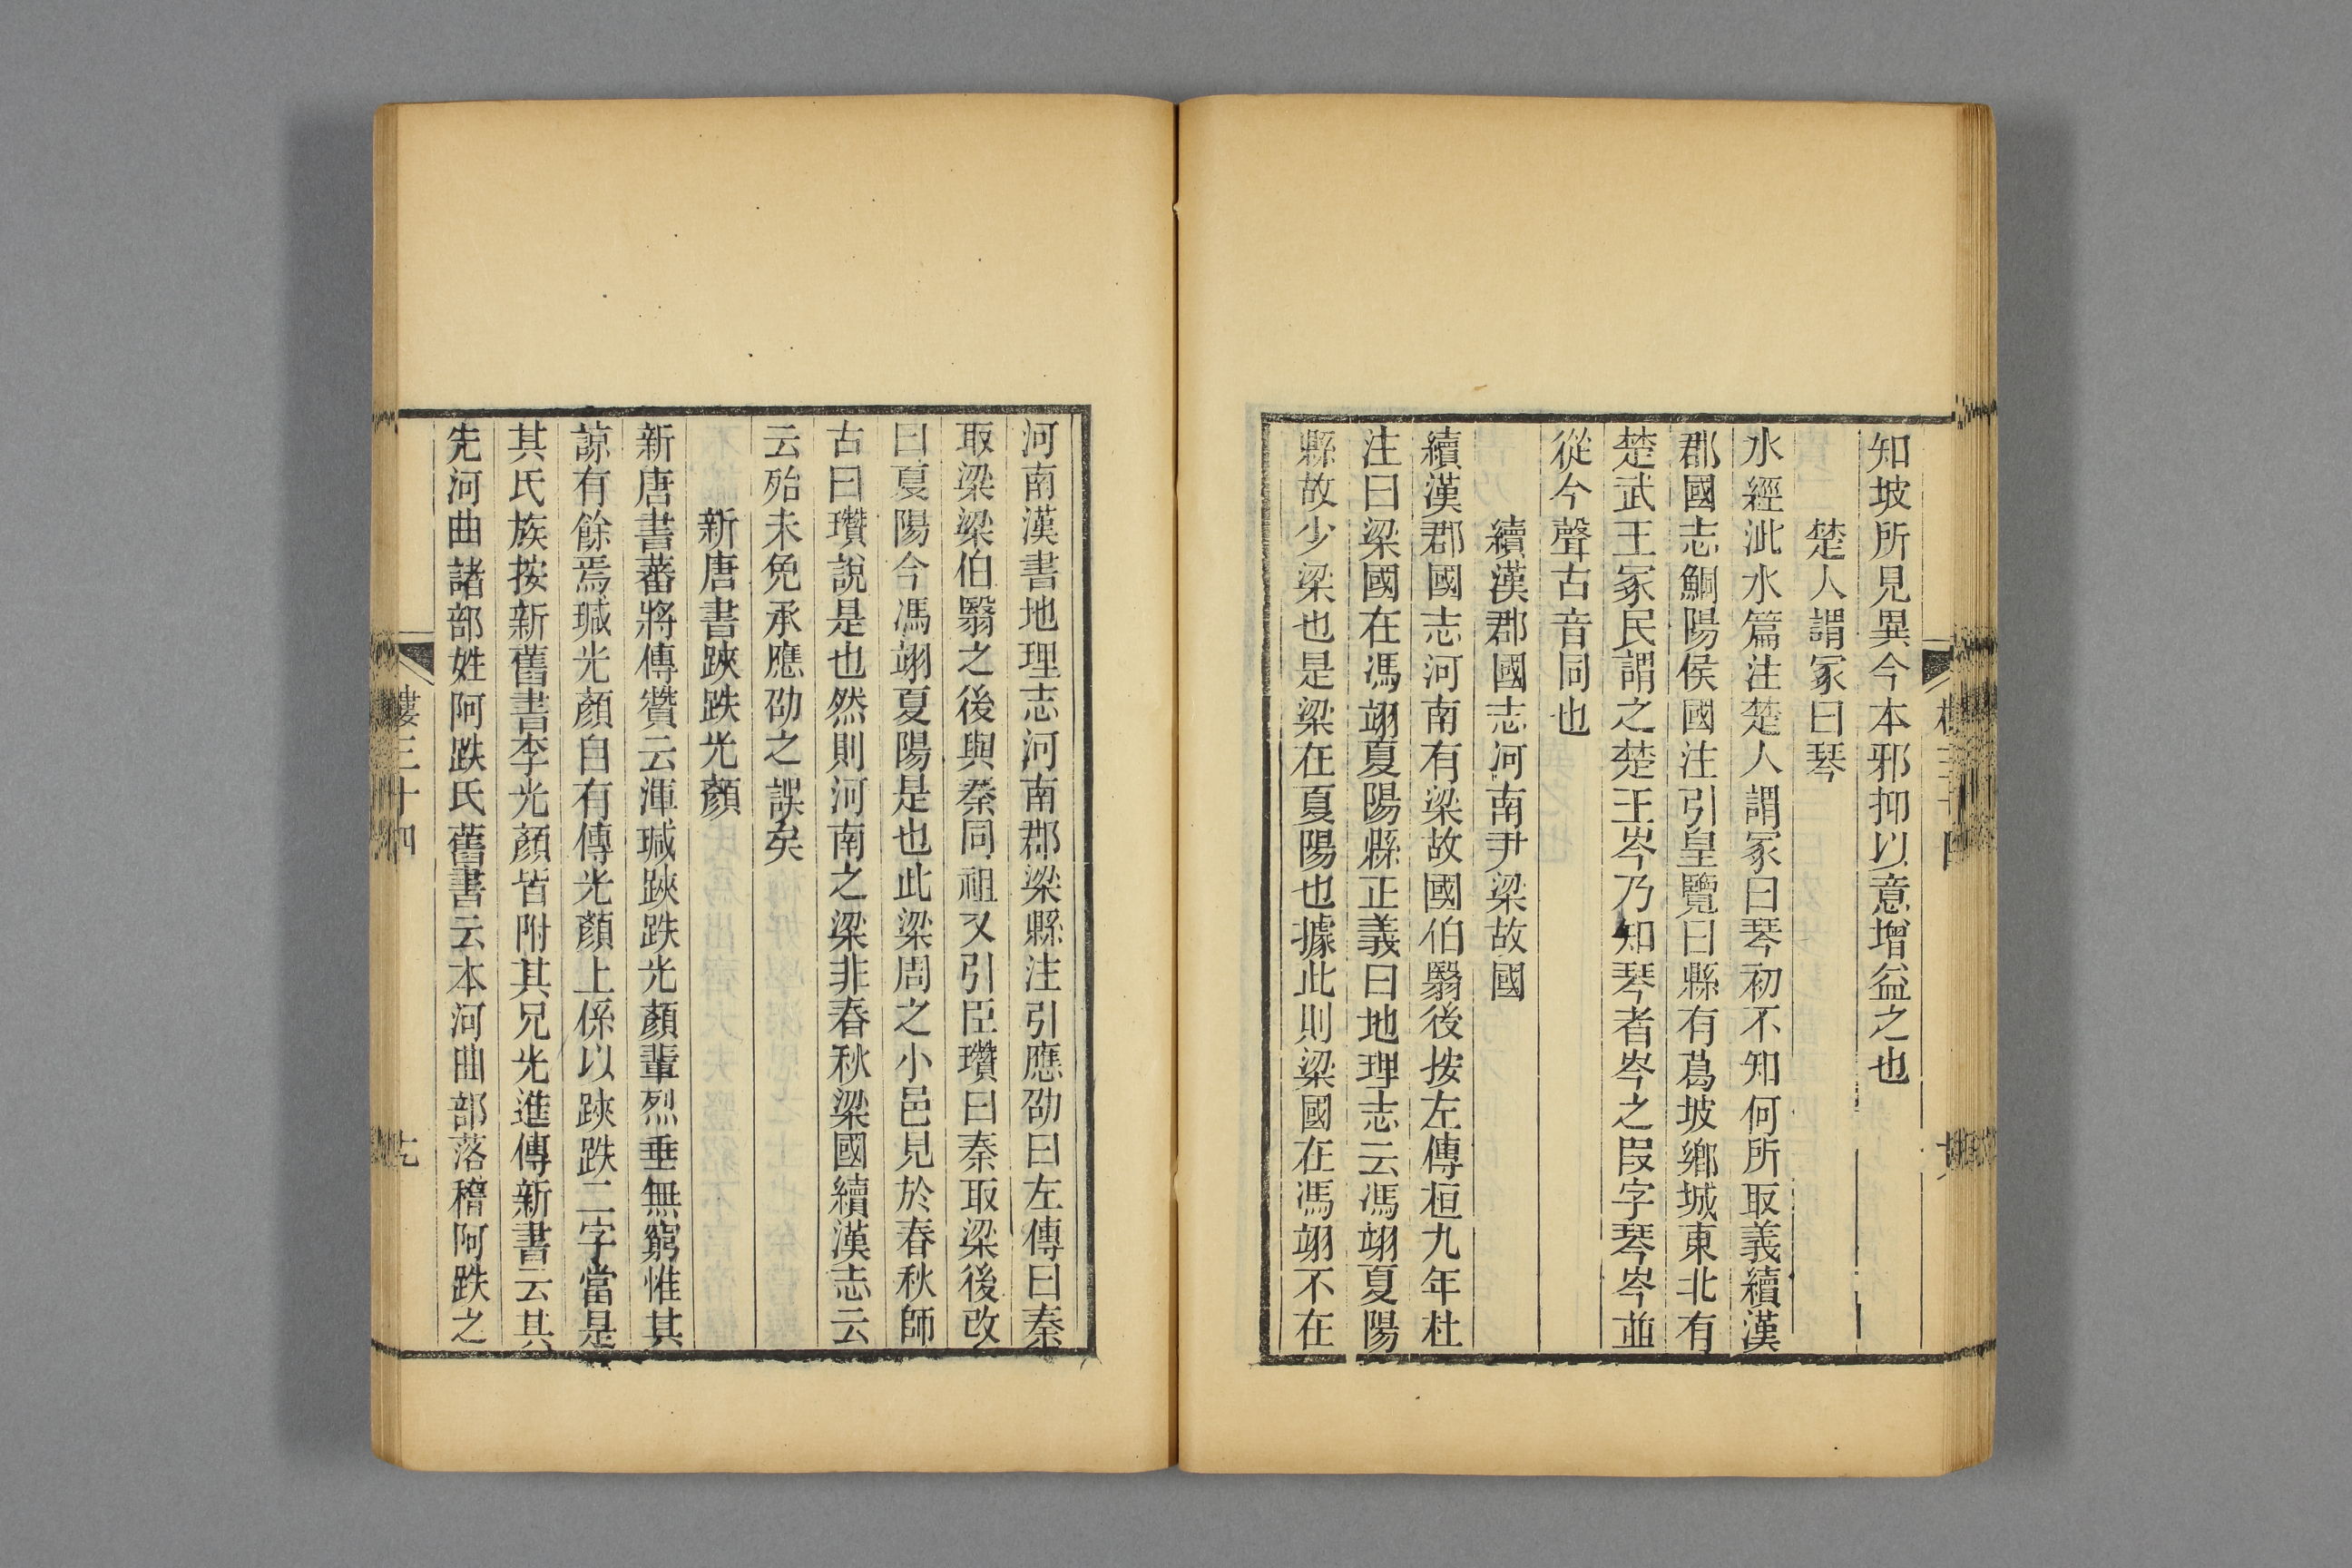 知坡所見異今本邪抑以意增益之也
楚人謂冢曰琴
水經泚水篇注楚人謂冢曰琴初不知何所取義續漢
郡國志鮦陽侯國注引皇覽曰縣有葛坡鄉城東北有
楚武王冢民謂之楚王岑乃知琴者岑之叚字琴岑並
從今聲古音同也
續漢郡國志河南尹梁故國
續漢郡國志河南有梁故國伯翳後按左傳桓九年杜
注曰梁國在馮翊夏陽縣正義曰地理志云馮翊夏陽
縣故少梁也是梁在夏陽也據此則梁國在馮翊不在
河南漢書地理志河南郡梁縣注引應劭曰左傳曰秦
取梁梁伯翳之後與秦同祖又引臣瓚曰秦取梁後改
曰夏陽今馮翊夏陽是也此梁周之小邑見於春秋師
古曰瓚說是也然則河南之梁非春秋梁國續漢志云
云殆未免承應劭之誤矣
新唐書䟮跌光顏
新唐書蕃將傳贊云渾瑊䟮跌光顏輩烈垂無窮惟其
諒有餘焉瑊光顏自有傳光顏上係以䟮跌二字當是
其氏族按新舊書李光顏皆附其兄光進傳新書云其
先河曲諸部姓阿跌氏舊書云本河曲部落稽阿跌之
樓三十四